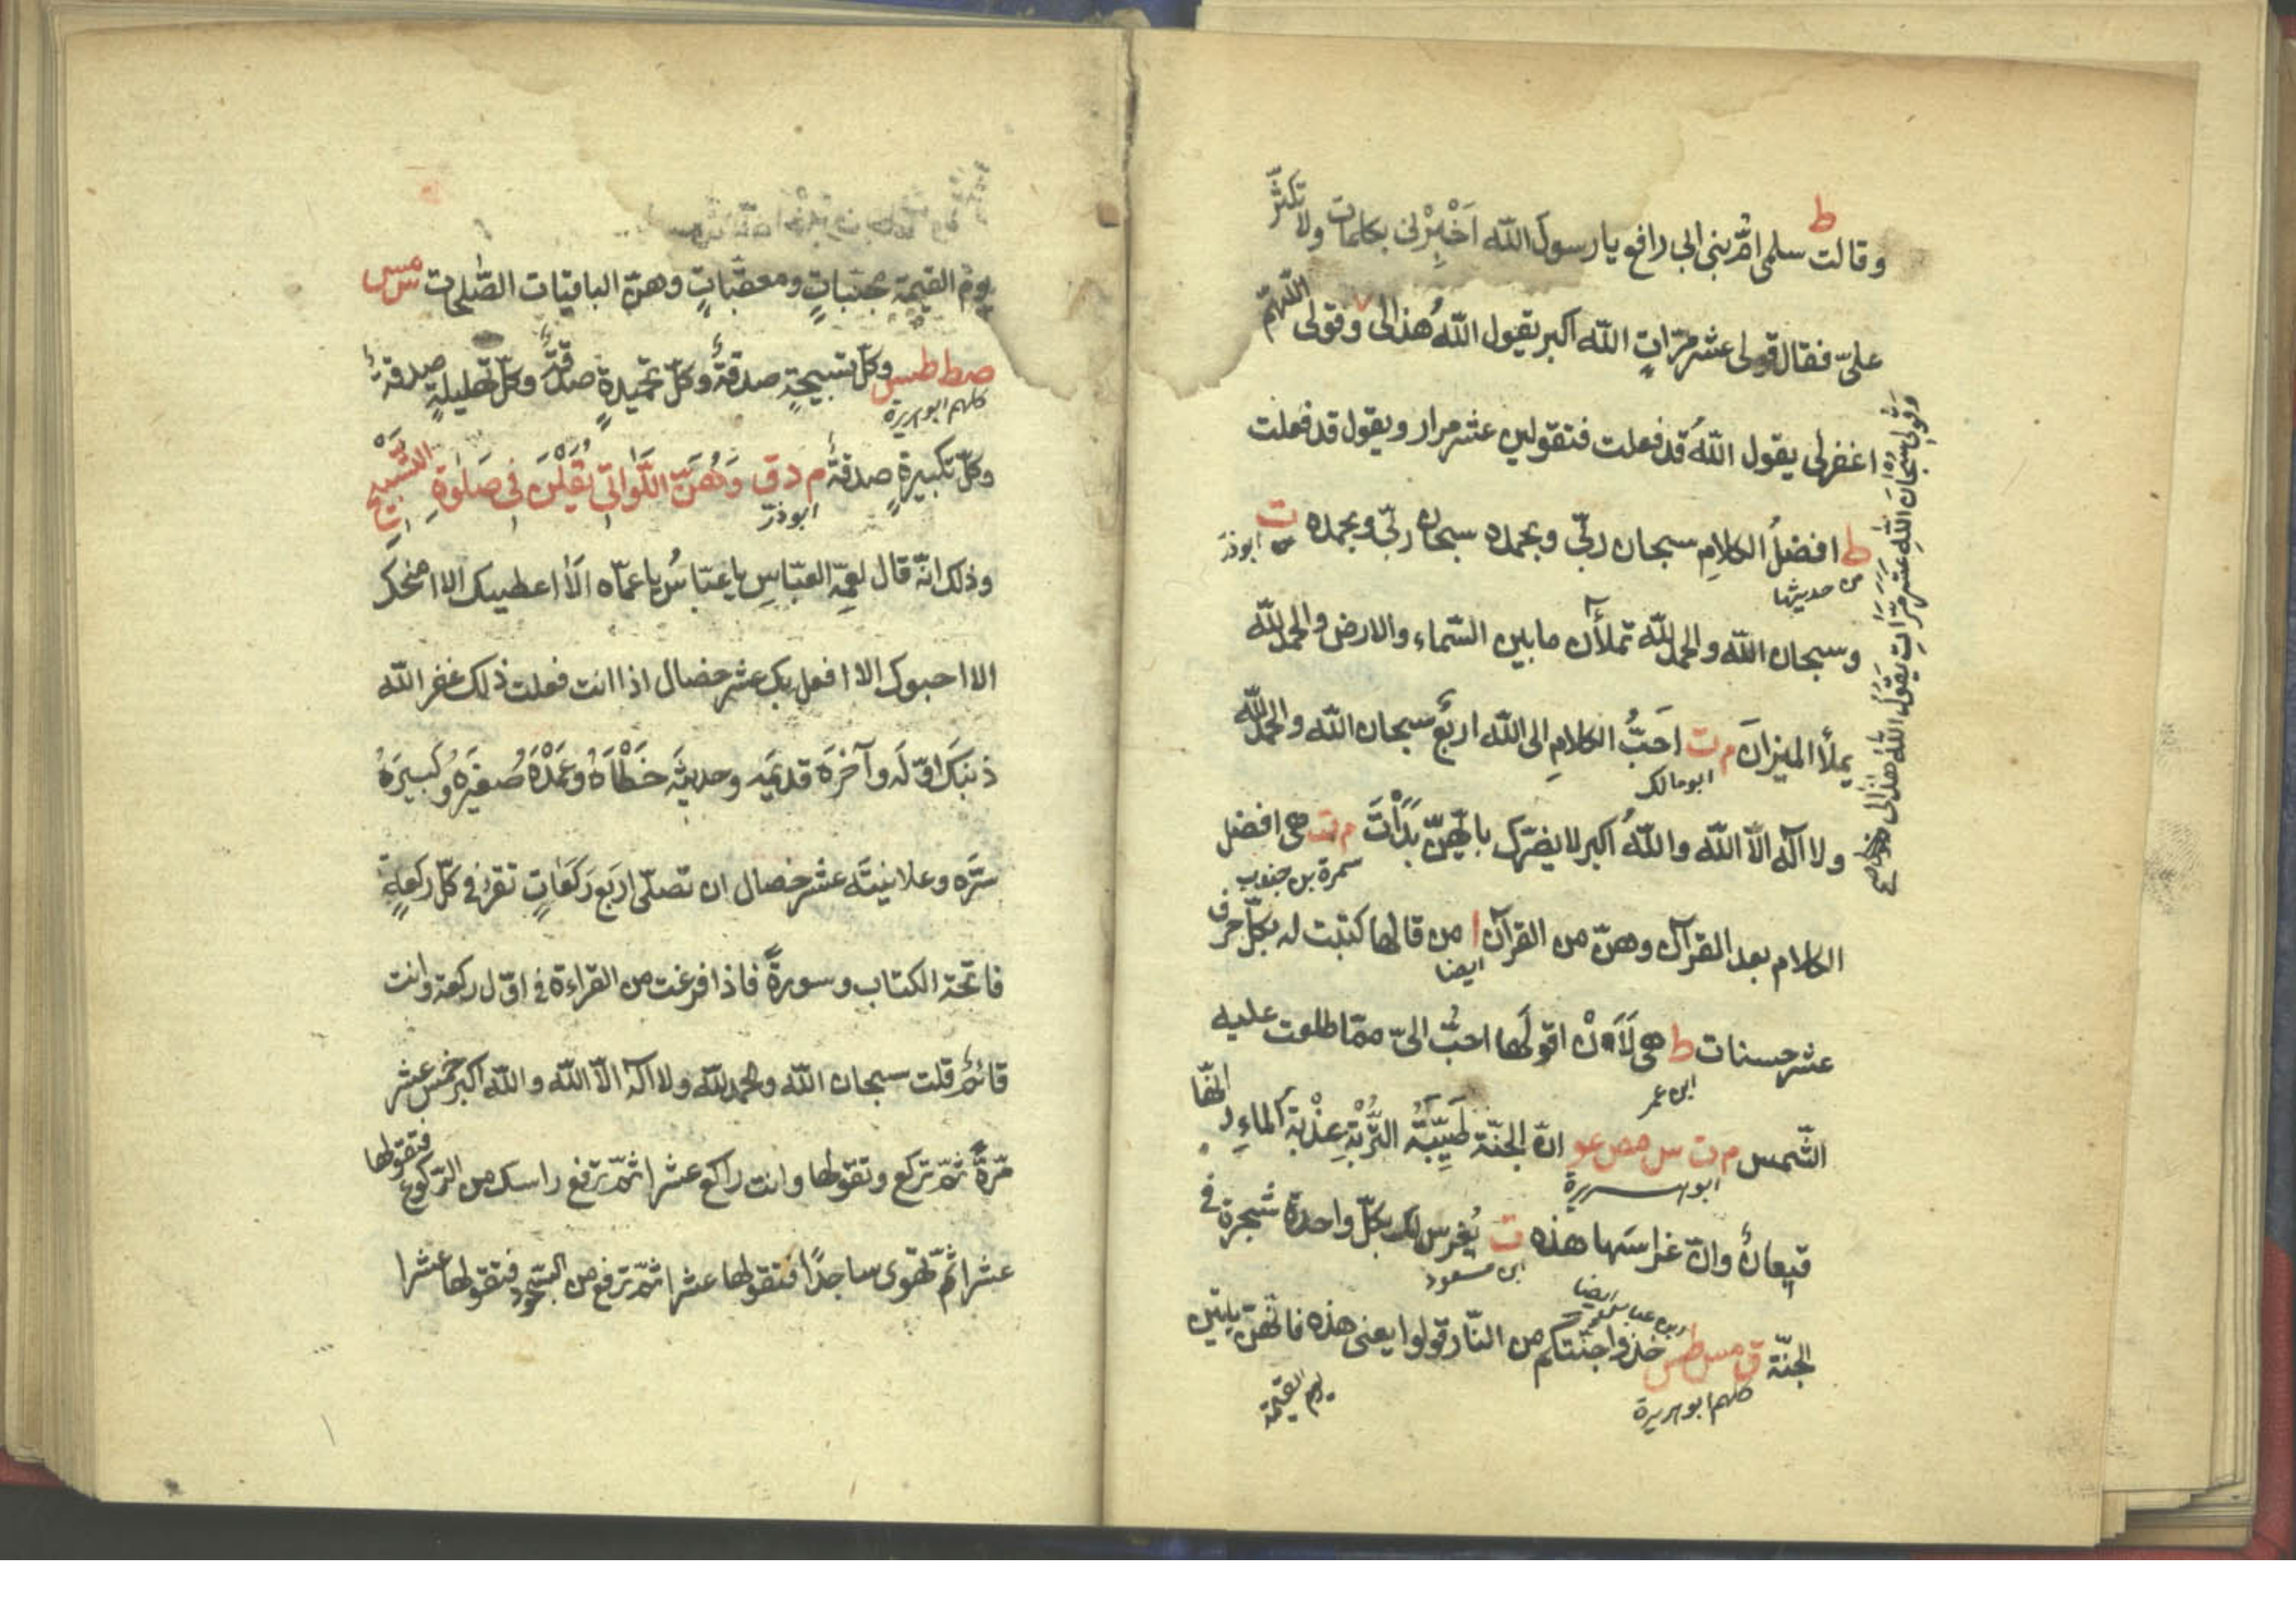 ط
وقالت سلمى امّ بنى ابى رافع يا رسول الله اَخْبِرْنى بكلمات ولا تكثّر
علىّ فقال قولى عشر مرّاتٍ الله اكبر يقول اللهُ هذا لى وقولى اللّهمّ
اغفرلى يقول اللهُ قد فعلت فتقولين عشر مرار ويقول قد فعلت
وقولى سبحان اللهِ عشر مرّاتٍ يقول اللهُ هذا لى صح
ط افضلُ الكلامِ سبحان ربّى وبحمده سبحان ربّى وبحمده ت
من حديثها
ابوذر
وسبحان الله والحمد لله تملأن ما بين السّماء والارض والحمد لله
يملأ الميزانَ م ت احَبُّ الكلامِ الى الله اربعٌ سبحان الله والحمد لله
ابومالك
ولا اله الّا الله واللهُ اكبر لا يضرّك بايّهنّ بَدَأْتَ م ت هى افضل
سمرة بن جندب
الكلام بعد القرآن وهنّ من القرآن ا من قالها كتبت له بكلّ حرف
ايضا
عشر حسنات ط هى لَاَنْ اقولَها احبُّ الىّ ممّا طلعت عليه
ابن عمر
الشّمس م ت س مص عو انّ الجنّة طَيِّبَةُ التُّرْبَةِ عذْبَة الماءِ وانّها
ابوهريرة
قيعانٌ وانّ غراسَها هذه ت يُغرس لك بكلّ واحدة شجرة فى
ابن مسعود
الجنّة ق مس طس خذوا جنّتكم من النّار قولوا يعنى هذه فانّهنّ ياتين
ابن عباس ايضا
كلهم ابوهريرة
يوم القيمة
يومَ القيمةِ مجنّباتٍ ومعقّباتٍ وهنّ الباقيات الصّلحت س مس
صط طس وكلّ تسبيحةٍ صدقةٌ وكلّ تحميدةٍ صدقةٌ وكلّ تهليلةٍ صدقةٌ
كلهم ابوهريرة
وكلّ تكبيرةٍ صدقةٌ م د ق وَهُنَّ اللَّوَاتى يُقَلْنَ فى صَلٰوةِ التَّسْبِيحِ
ابوذر
وذلك انّه قال لعمّه العبّاسِ يا عبّاسُ يا عمّاه الَا اعطيك الا امنحك
الا احبوك الا افعل بك عشر خصال اذا انت فعلت ذلك غفر الله
ذنبكَ اوّلَه وآخرَه قديمَه وحديثَه خَطَأَهُ وعَمْدَهُ صُغيَرَه وكبيرَهُ
سرَّه وعلانيتَه عشر خصال ان تصلّى اربع رَكَعَاتٍ تقرأ فى كلّ ركعةٍ
فاتحة الكتاب وسورةً فاذا فرغت من القراءة فى اوّل ركعة وانت
قائمٌ قلت سبحان الله والحمد لله ولا اله الّا الله والله اكبر خمس عشر
مرّةً ثمّ تركع وتقولها وانت راكع عشرا ثمّ ترفع راسك من الرّكوع فتقولها
عشرا ثمّ تهوى ساجدًا فتقولها عشرا ثمّ ترفع من السّجود فتقولها عشرا